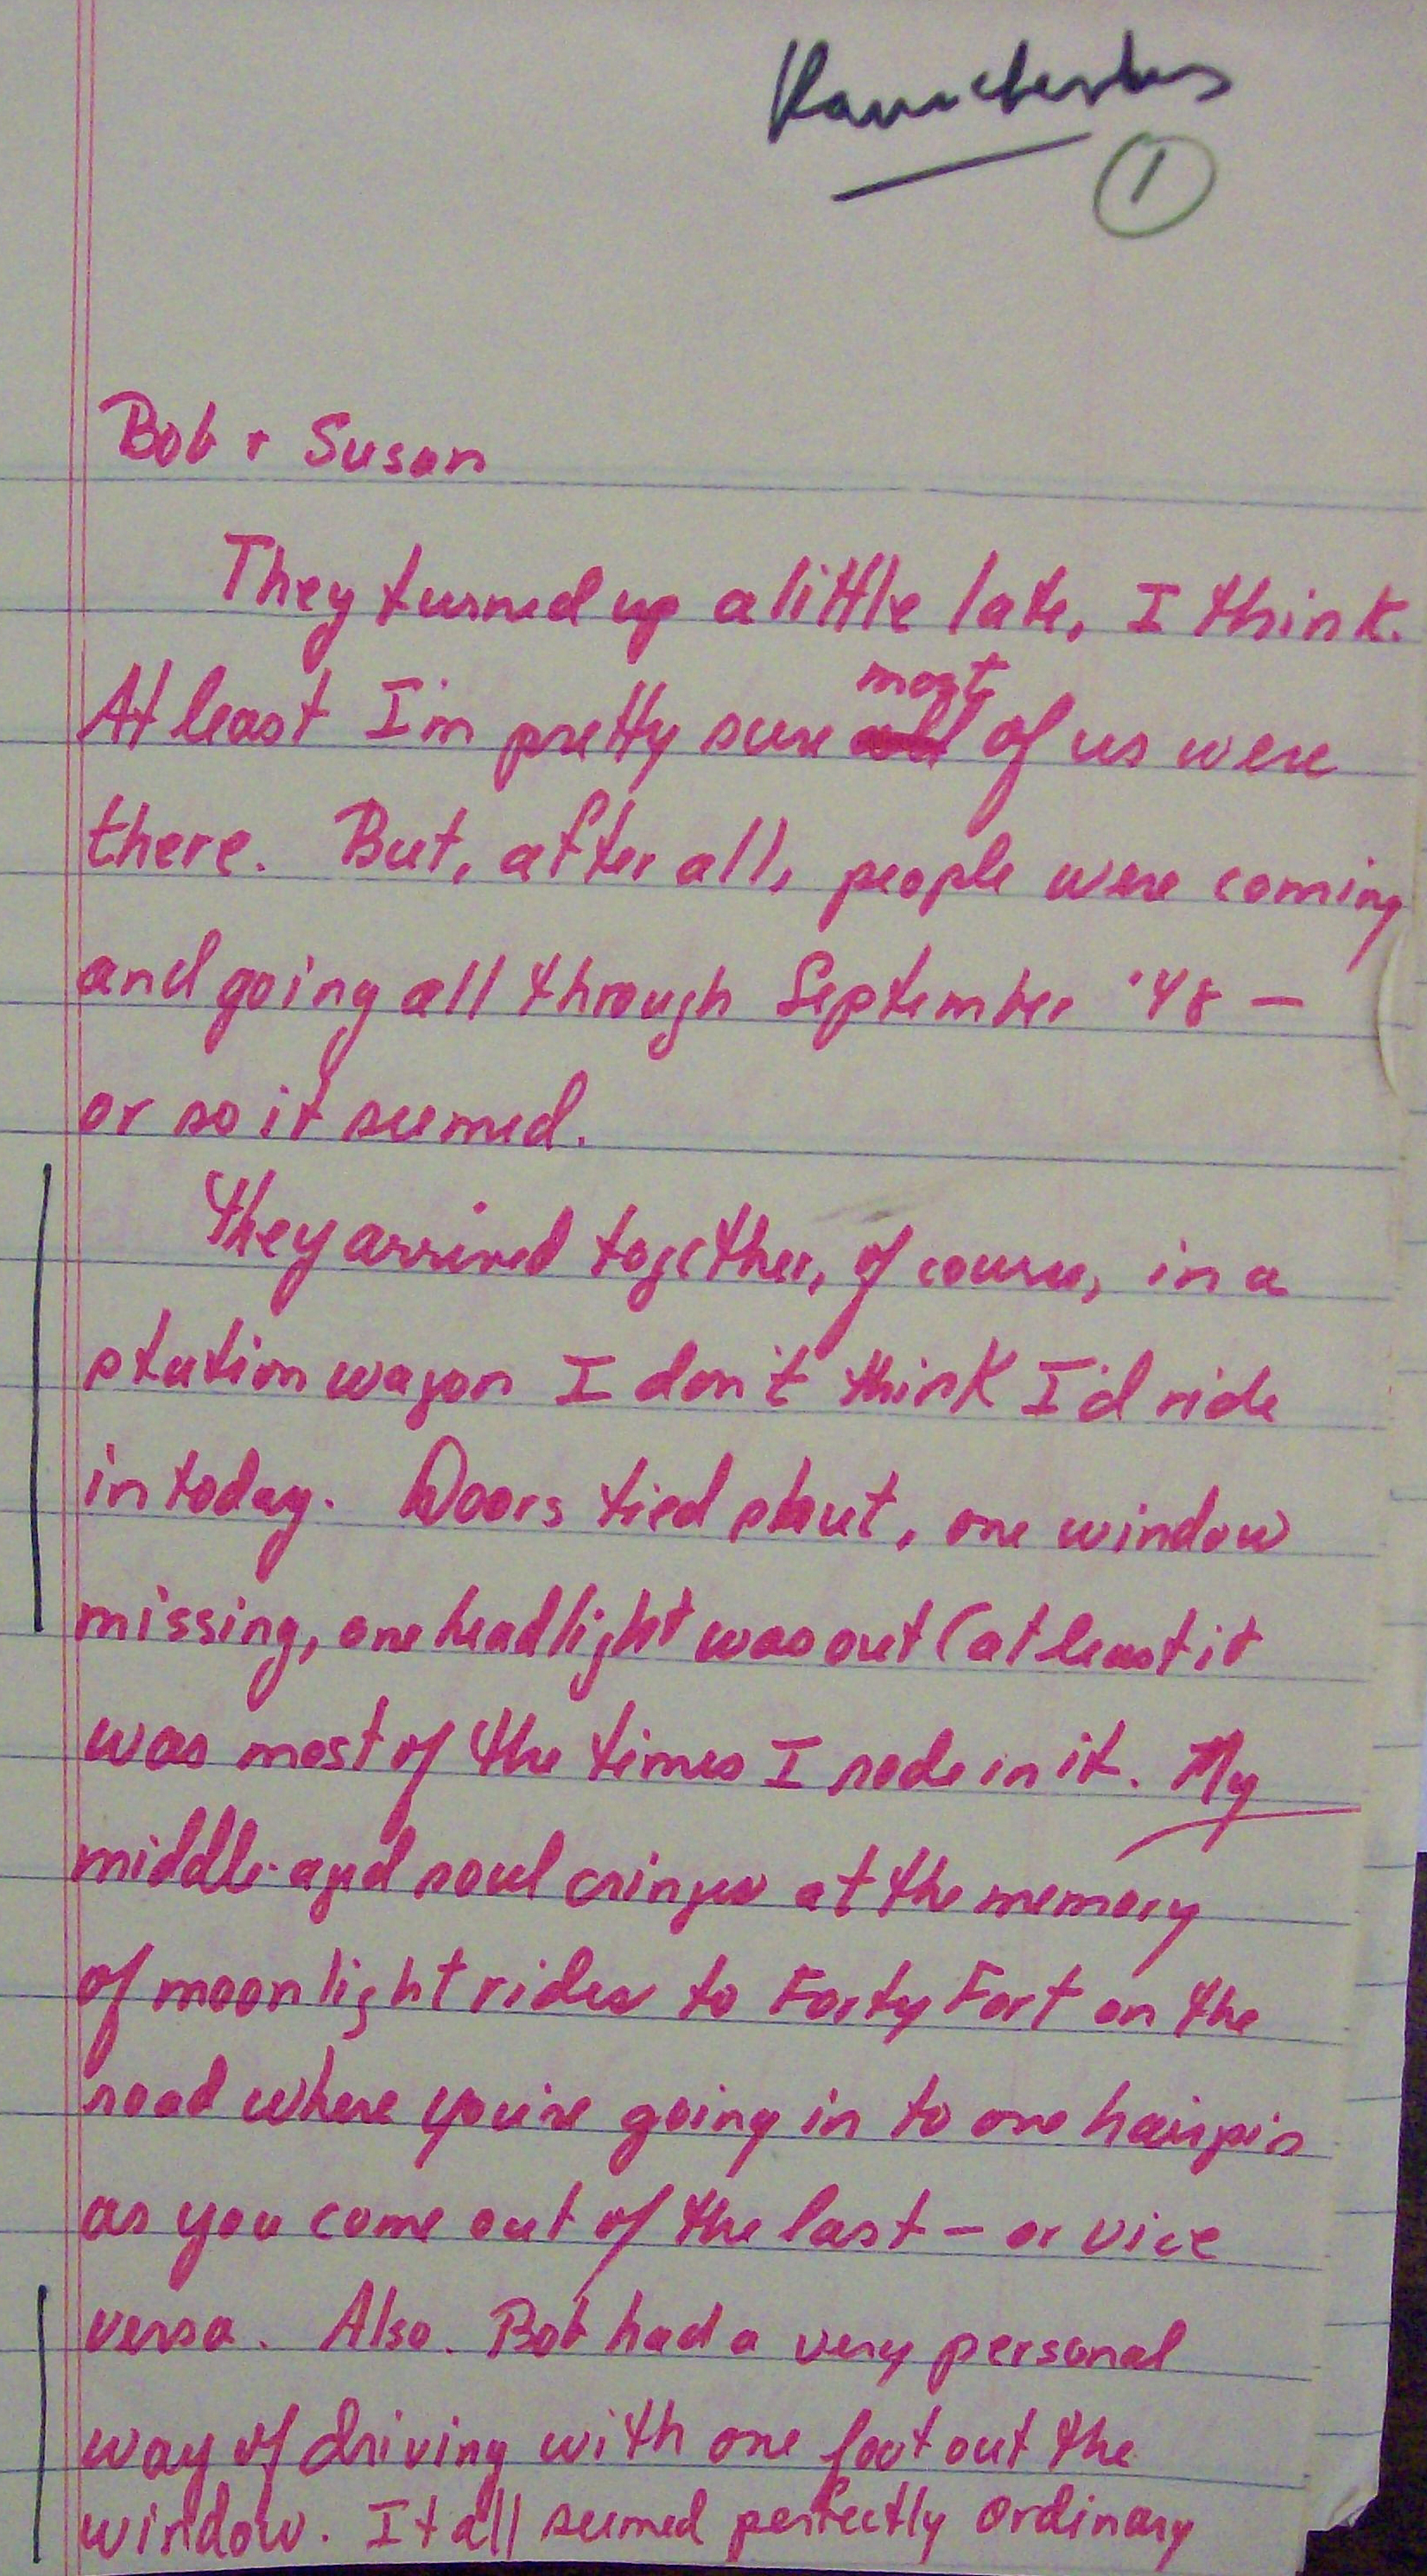 ①
Bob + Susan
They turned up a little late, I think.
At least I'm pretty sure most of us were
there. But, after all, people were coming
and going all through September '48 —
or so it seemed.
They arrived together, of course, in a
station wagon I don't think I'd ride
in today. Doors tied shut, one window
missing, one headlight was out (at least it
was most of the times I rode in it. My
middle-aged soul cringes at the memory
of moonlight rides to Forty Fort on the
road where you're going in to one hairpin
as you come out of the last — or vice
versa. Also. Bob had a very personal
way of driving with one foot out the
window. It all seemed perfectly ordinary